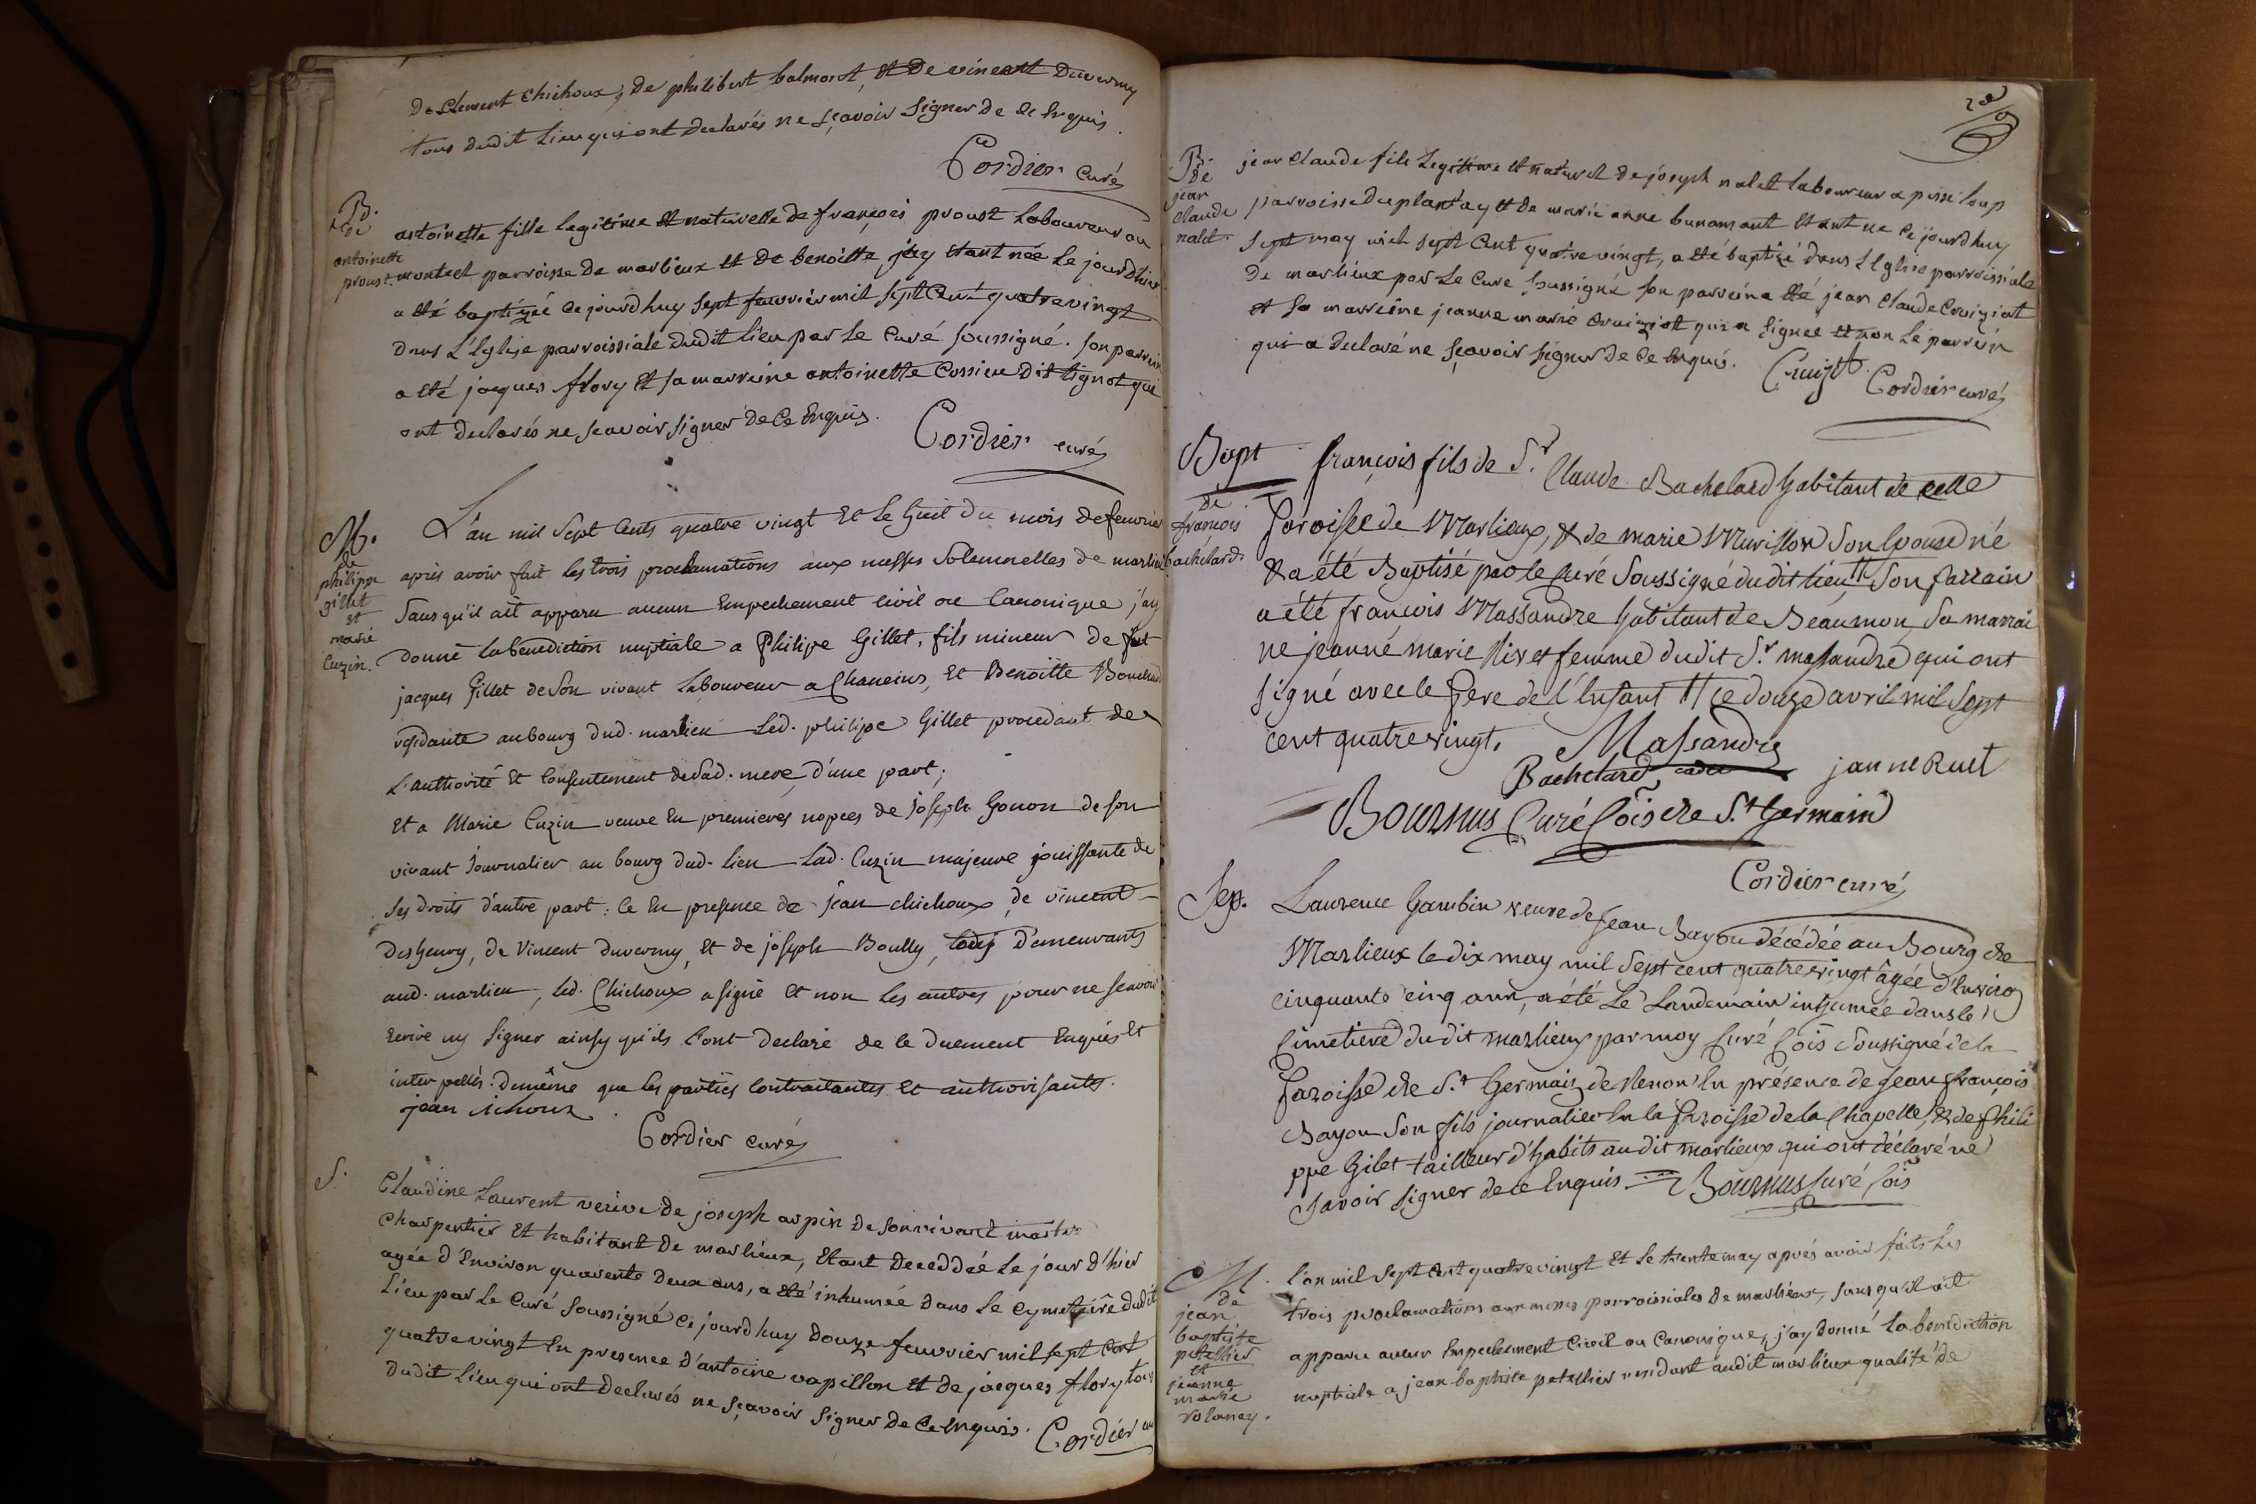 de Clement Chichoux, de philibert balmont, et de vincent Duverny
tous dudit Lieu qui ont declarés ne sçavoir signer de ce Enquis.
Cordier curé
B.
de
antoinette
proust
antoinette fille legitime et naturelle de françois proust Laboureur au
montech parroisse de marlieux et de benoitte jdy Etant née Le jour dhier
a été baptizéé ce jourd huy sept feuvrier mil sept Cent quatre vingt
dans L'Eglise parroissiale dudit lieu par le Curé soussigné. son parrein
a été jacques flory et sa marreine antoinette Cossieu dit tignot qui
ont declarés ne scavoir signer de Ce Enquis.
Cordier curé
M.
de
philippe
gillet
et
marie
Cuzin.
L'an mil Sept Cents quatre vingt Et le huit du mois de feuvrier
après avoir fait les trois proclamations aux messes Solemnelles de marlieux
Sans qu'il ait apparu aucun Empechement civil ou Canonique j'ay
donné la benediction nuptiale a Philipe Gillet, fils mineur de fut
jacques Gillet de Son vivant Laboureur a Chaneins, et Benoitte Bouchard
residante au bourg dud. marlieu Led. philipe Gillet procedant de
L'authorité Et Consentement de Sad. mere d'une part;
Et a Marie Cuzin veuve En premieres nopces de joseph Gonon de son
vivant journalier au bourg dud. lieu Lad. Cuzin majeure jouissante de
ses droits d'autre part: Ce En presence de jean chichoux, de vincent
Desgeury, de Vincent duverny, et de joseph Boully, tous demeurants
aud. marlieu, led. Chichoux a signé Et non les autres pour ne scavoir
Ecrire ny signer ainsy qu'ils l'ont declaré de ce duement Enquis Et
interpellés. de même que les parties Contractantes Et authorisantes.
jean Sichoux
Cordier curé
S.
Claudine Laurent veuve de joseph arpin de son vivant maitre
Charpentier Et habitant de marlieux, Etant deceddéé Le jour d'hier
agée d'Environ quarente deux ans, a été inhumée dans le Cymetiere dudit
Lieu par Le Curé soussigné Ce jourd huy douze feuvrier mil sept Cent
quatre vingt En presence d'antoine vapillon Et de jacques flory tous
dudit Lieu qui ont declarés ne sçavoir signer de Ce Enquis. Cordier cu
B.
de
jean
claude
nalet
jean Claude fils Legitime et naturel de joseph nalet laboureur a pisse loup
parroisse du plantay et de marie anne bunamant Etant ne Ce jourd huy
sept may mil sept Cent quatre vingt, a été baptizé dans L'Eglise parroissiale
de marlieux par Le Cure soussigné son parrein a été jean Claude Cruiziat
et sa marreine jeanne marie Cruiziat qui a signee et non Le parrein
qui a declaré ne sçavoir signer de Ce Enquis.
Cordier curé
Bapt
de
françois
bachelard
françois fils de S.r Claude Bachelard habitant de cette
Paroisse de Marlieux, & de marie Murillon Son Epouse né
& a été Baptisé par le Curé Soussigné dudit lieu Son Parrain
a été françois Massandre habitant de Beaumon, Sa marrai
ne jeanne marie Rivet femme dudit S.r masandre qui ont
signé avec le Pere de l'Enfant ce douze avril mil Sept
cent quatre vingt.
Massandre
Bachelard janne Ruet
Bournus Curé Cois de S.t Germain
Cordier curé
Sep.
Laurence Gambin veuve de Jean Bayou décédée au Bourg de
Marlieux le dix may mil Sept cent quatre vingt âgée d'Environ
cinquante cinq ans, a été Le Landemain inhumée dans le
Cimetiere dudit marlieux par moy Curé Cois Soussigné de la
Paroisse de S.t Germain de Renon En présence de Jean françois
Bayou Son fils journalier En la Paroisse de la Chapelle, & de Phili
ppe Gilet tailleur d'habits audit marlieux qui ont déclaré ne
Savoir signer de ce Enquis Bournus Curé Cois
M.
de
jean
baptiste
petellier
et
jeanne
marie
rolaney.
l'an mil sept Cent quatre vingt Et le trente may aprés avoir faits Les
trois proclamations aux messes parroissiales de marlieux, sans qu'il ait
apparu aucun Empechement Civil ou Canonique, j'ay donné La benediction
nuptiale a jean baptiste petellier residant audit marlieux qualité de